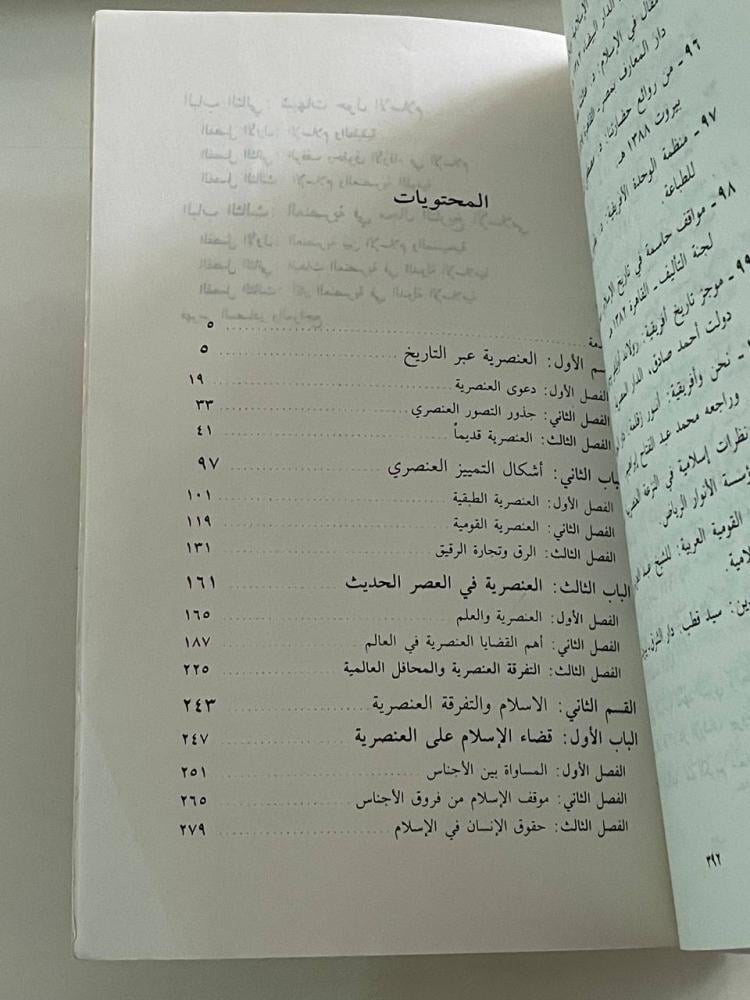 المحتويات
٥
ـسم الأول: العنصرية عبر التاريخ ٥
الفصل الأول: دعوى العنصرية ١٩
الفصل الثاني: جذور التصور العنصري ٣٣
الفصل الثالث: العنصرية قديماً ٤١
ـباب الثاني: أشكال التمييز العنصري ٩٧
الفصل الأول: العنصرية الطبقية ١٠١
الفصل الثاني: العنصرية القومية ١١٩
الفصل الثالث: الرق وتجارة الرقيق ١٣١
الباب الثالث: العنصرية في العصر الحديث ١٦١
الفصل الأول: العنصرية والعلم ١٦٥
الفصل الثاني: أهم القضايا العنصرية في العالم ١٨٧
الفصل الثالث: التفرقة العنصرية والمحافل العالمية ٢٢٥
القسم الثاني: الاسلام والتفرقة العنصرية ٢٤٣
الباب الأول: قضاء الإسلام على العنصرية ٢٤٧
الفصل الأول: المساواة بين الأجناس ٢٥١
الفصل الثاني: موقف الإسلام من فروق الأجناس ٢٦٥
الفصل الثالث: حقوق الإنسان في الإسلام ٢٧٩
٩٦ -
دار المعارف
من روائع حضارتنا، د.
بيروت ١٣٨٨ هـ
٩٧ - منظمة الوحدة الأفريقية، د.
للطباعة.
٩٨ - مواقف حاسمة في تاريخ الإسلام
لجنة التأليف - القاهرة ١٣٨٢ هـ
٩٩ - موجز تاريخ أفريقية: رولاند
دولت أحمد صادق، الدار
- نحن وأفريقية: أنور زقلمة،
وراجعه محمد عبد الفتاح إبراهيم
نظرات إسلامية في
مؤسسة الأنوار الرياض.
القومية العربية: للشيخ عبد
سيد قطب، دار
٣٩٢